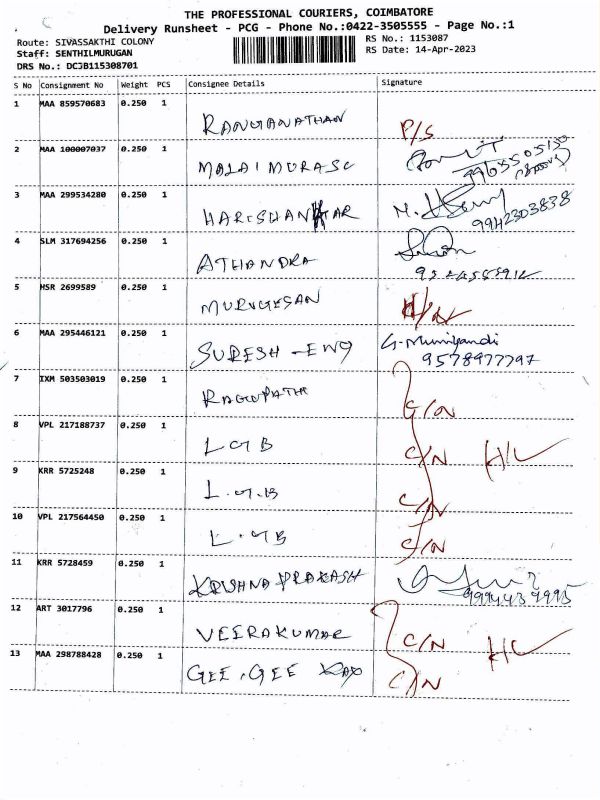 THE PROFESSIONAL COURIERS, COIMBATORE
Delivery Runsheet - PCG - Phone No.:0422-3505555 - Page No.:1
Route: SIVASSAKTHI COLONY
RS No.: 1153087
Staff: SENTHILMURUGAN
RS Date: 14-Apr-2023
DRS No.: DCJB115308701
S No Consignment No Weight PCS Consignee Details Signature
1 MAA 859570683 0.250 1
RANGANATHAN P/S
2 MAA 100007037 0.250 1
MALAIMURASU
3 MAA 299534280 0.250 1
HARISHANKAR 9942303838
4 SLM 317694256 0.250 1
ATHANDRA
5 HSR 2699589 0.250 1
MURUGESAN
6 MAA 295446121 0.250 1 G. Muniyandi
SURESH - ENG 9578977797
7 IXM 503503019 0.250 1
RAGUPATHI C/N
8 VPL 217188737 0.250 1
LGB C/N H/L
9 KRR 5725248 0.250 1
L.G.B C/N
10 VPL 217564450 0.250 1
L.GB C/N
11 KRR 5728459 0.250 1
KRISHNAPRAKASH
12 ART 3017796 0.250 1
VEERAKUMAR C/N H/L
13 MAA 298788428 0.250 1
GEE.GEE C/N